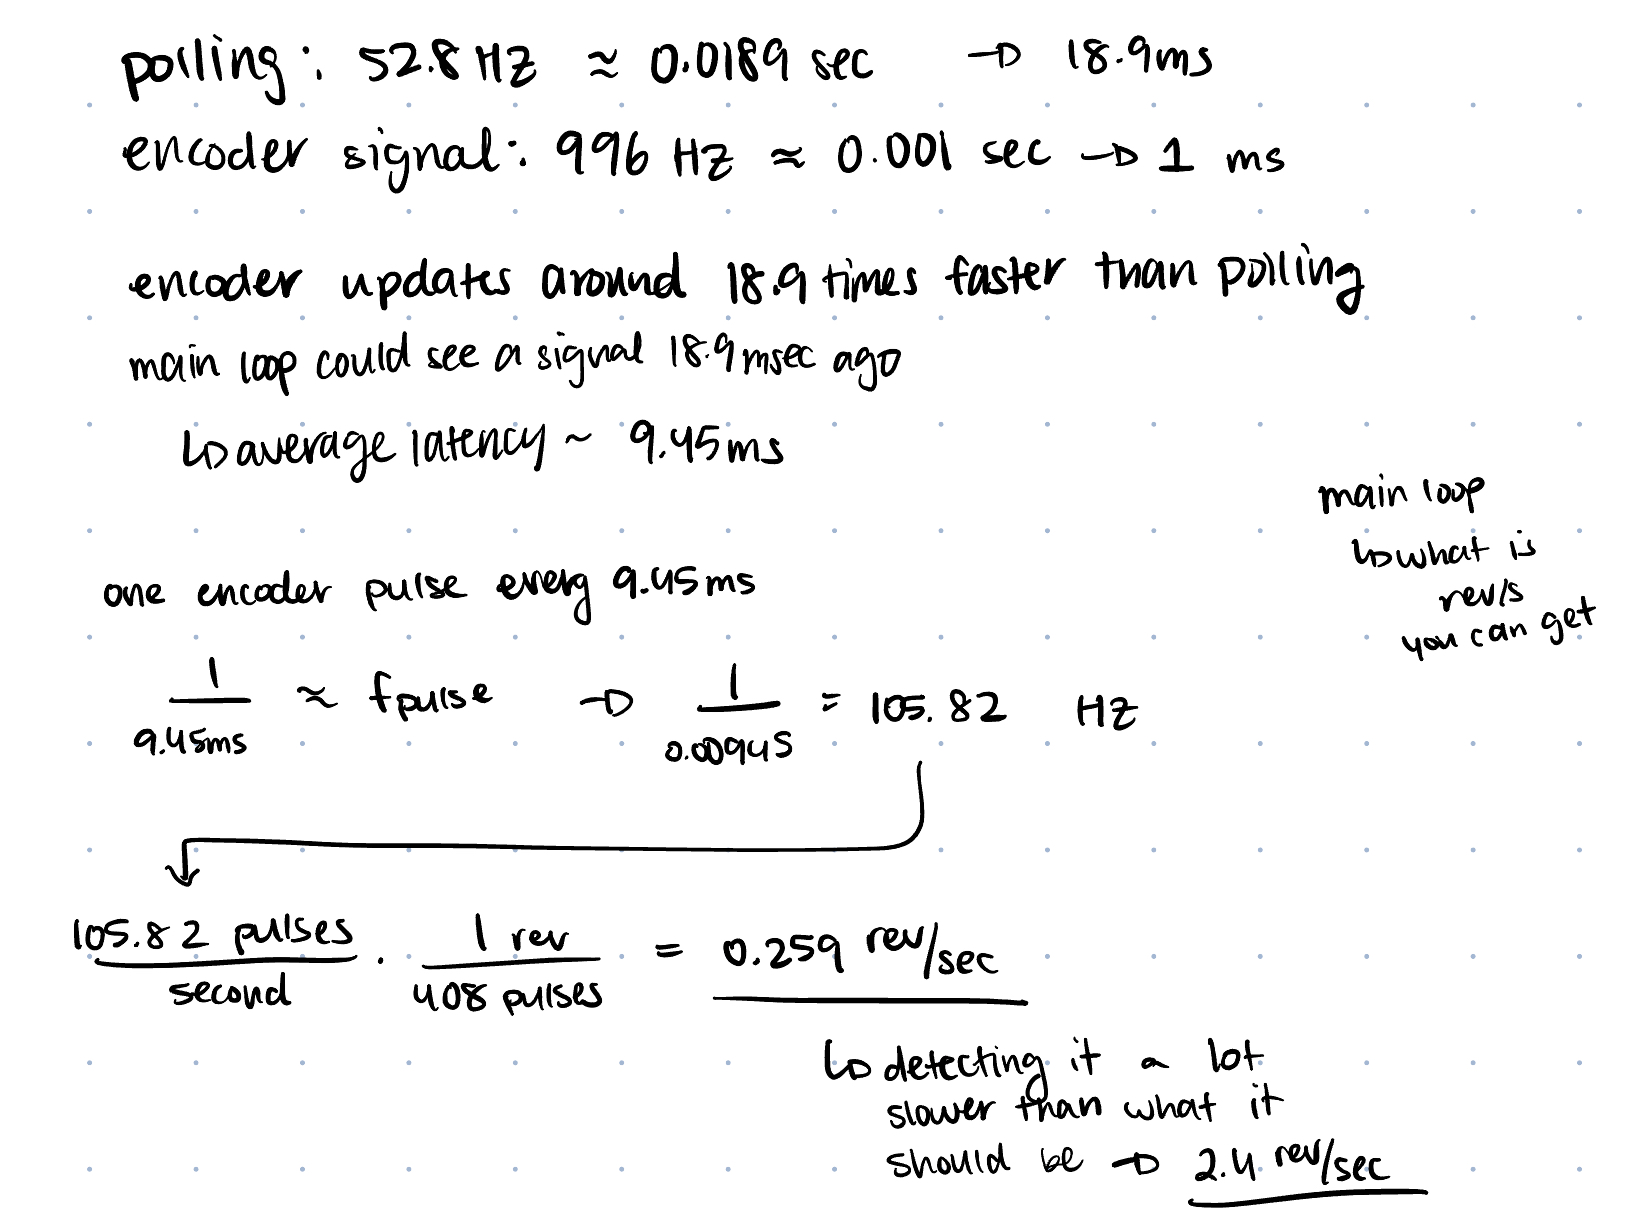 polling: 52.8 HZ ≈ 0.0189 sec → 18.9ms
encoder signal: 996 HZ ≈ 0.001 sec → 1 ms
encoder updates around 18.9 times faster than polling
main loop could see a signal 18.9msec ago
↳ average latency ~ 9.45ms
main loop
↳ what is
rev/s
you can get
one encoder pulse every 9.45ms
1/9.45ms ≈ fpulse → 1/0.00945 = 105.82 HZ
105.82 pulses/second · 1 rev/408 pulses = 0.259 rev/sec
↳ detecting it a lot
slower than what it
should be → 2.4 rev/sec